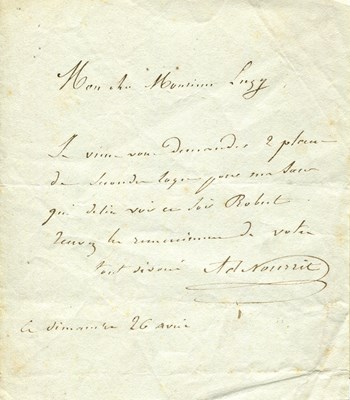 Mon cher Monsieur Lugy
Je viens vous demander 2 places
de secondes loges pour ma sœur
qui désire voir ce soir Robert
les remerciemens de votre
tout dévoué Ad Nourrit
ce dimanche 26 avril